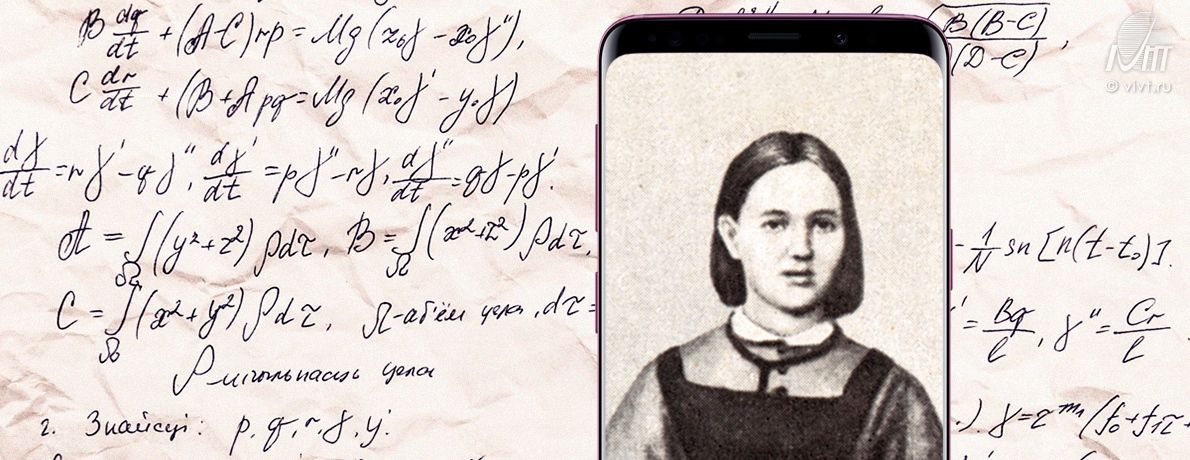 B dq/dt + (A-C)rp = Mg(z₀γ - x₀γ''),
C dr/dt + (B+A pq = Mg(x₀γ' - y₀γ)
dγ/dt = rγ' - qγ'', dγ'/dt = pγ'' - rγ, dγ''/dt = qγ - pγ'.
A = ∫(y²+z²)ρdτ, B = ∫(x²+z²)ρdτ,
C = ∫(x²+y²)ρdτ, Ω-аб'ём цела, dτ =
ρ цела
2. Знайсці: p, q, r, γ, γ'.
B(B-C)
(D-C) ,
- 1/N sn [n(t-t₀)].
' = Bq/l, γ'' = Cr/l
.). γ = (f₀+f₁τ
© vivt.ru